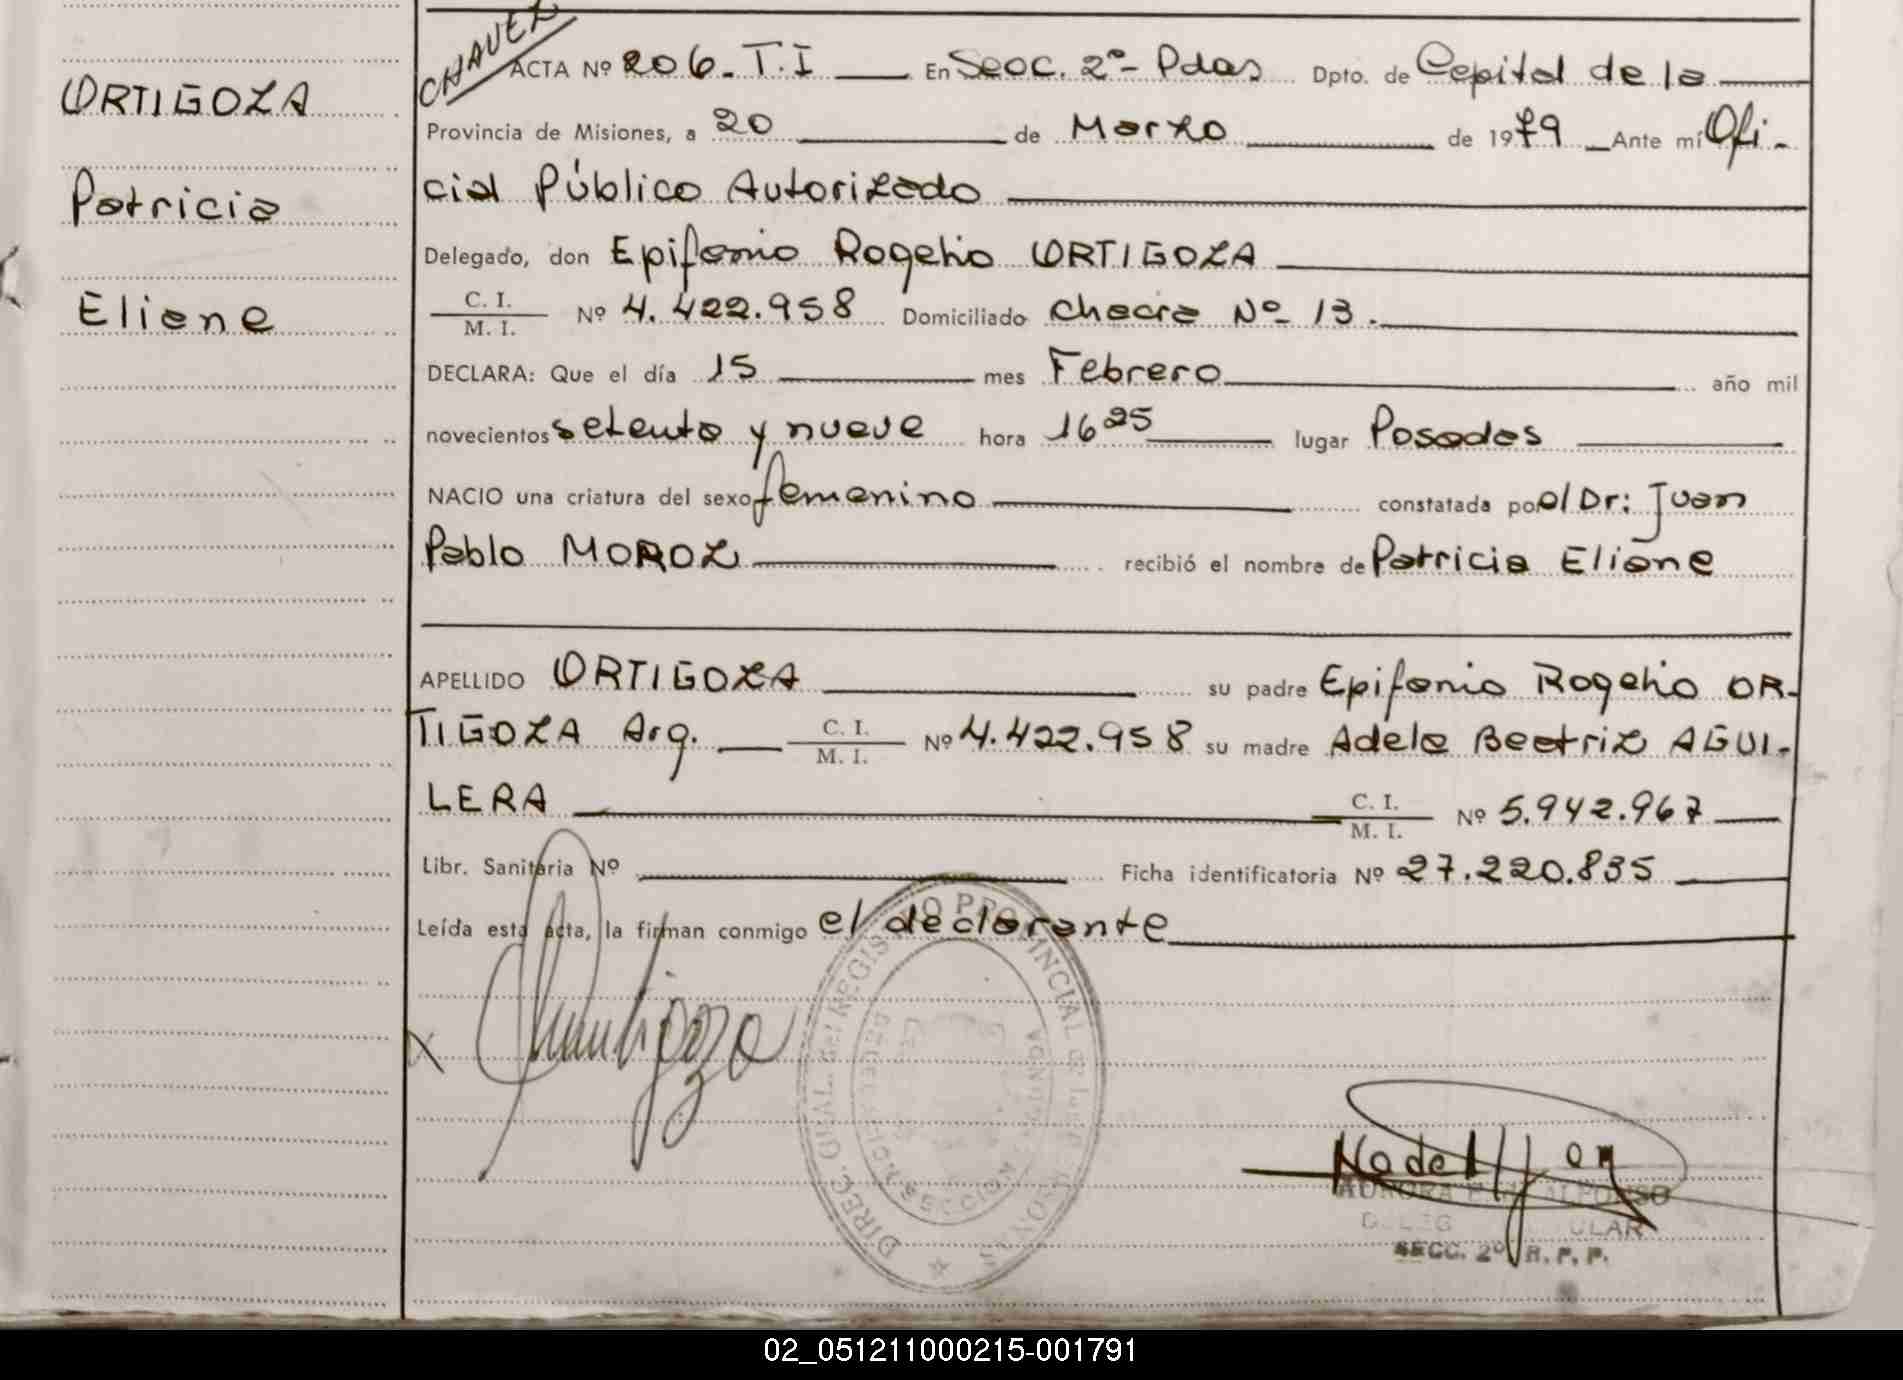 ORTIGOZA
Patricia
Eliane
CHAVEZ
ACTA Nº 206. T.I En Secc. 2º- Pdas Dpto. de Capital de la
Provincia de Misiones, a 20 de Marzo de 1979 Ante mí Ofi-
cial Público Autorizado
Delegado, don Epifanio Rogelio ORTIGOZA
C. I.
M. I. Nº 4.422.958 Domiciliado Chacra Nº 13.
DECLARA: Que el día 15 mes Febrero año mil
novecientos setenta y nueve hora 16 25 lugar Posadas
NACIO una criatura del sexo femenino constatada por el Dr: Juan
Pablo MOROZ recibió el nombre de Patricia Eliane
APELLIDO ORTIGOZA su padre Epifanio Rogelio OR-
TIGOZA Arg. C. I.
M. I. Nº 4.422.958 su madre Adela Beatriz AGUI-
LERA C. I.
M. I. Nº 5.942.967
Libr. Sanitaria Nº Ficha identificatoria Nº 27.220.835
Leída esta acta, la firman conmigo el declarante
X
DIREC. GRAL. del REGISTRO PROVINCIAL de las PERSONAS
SECCION
AURORA ALFONSO
SECC. 2º R. P. P.
02_051211000215-001791